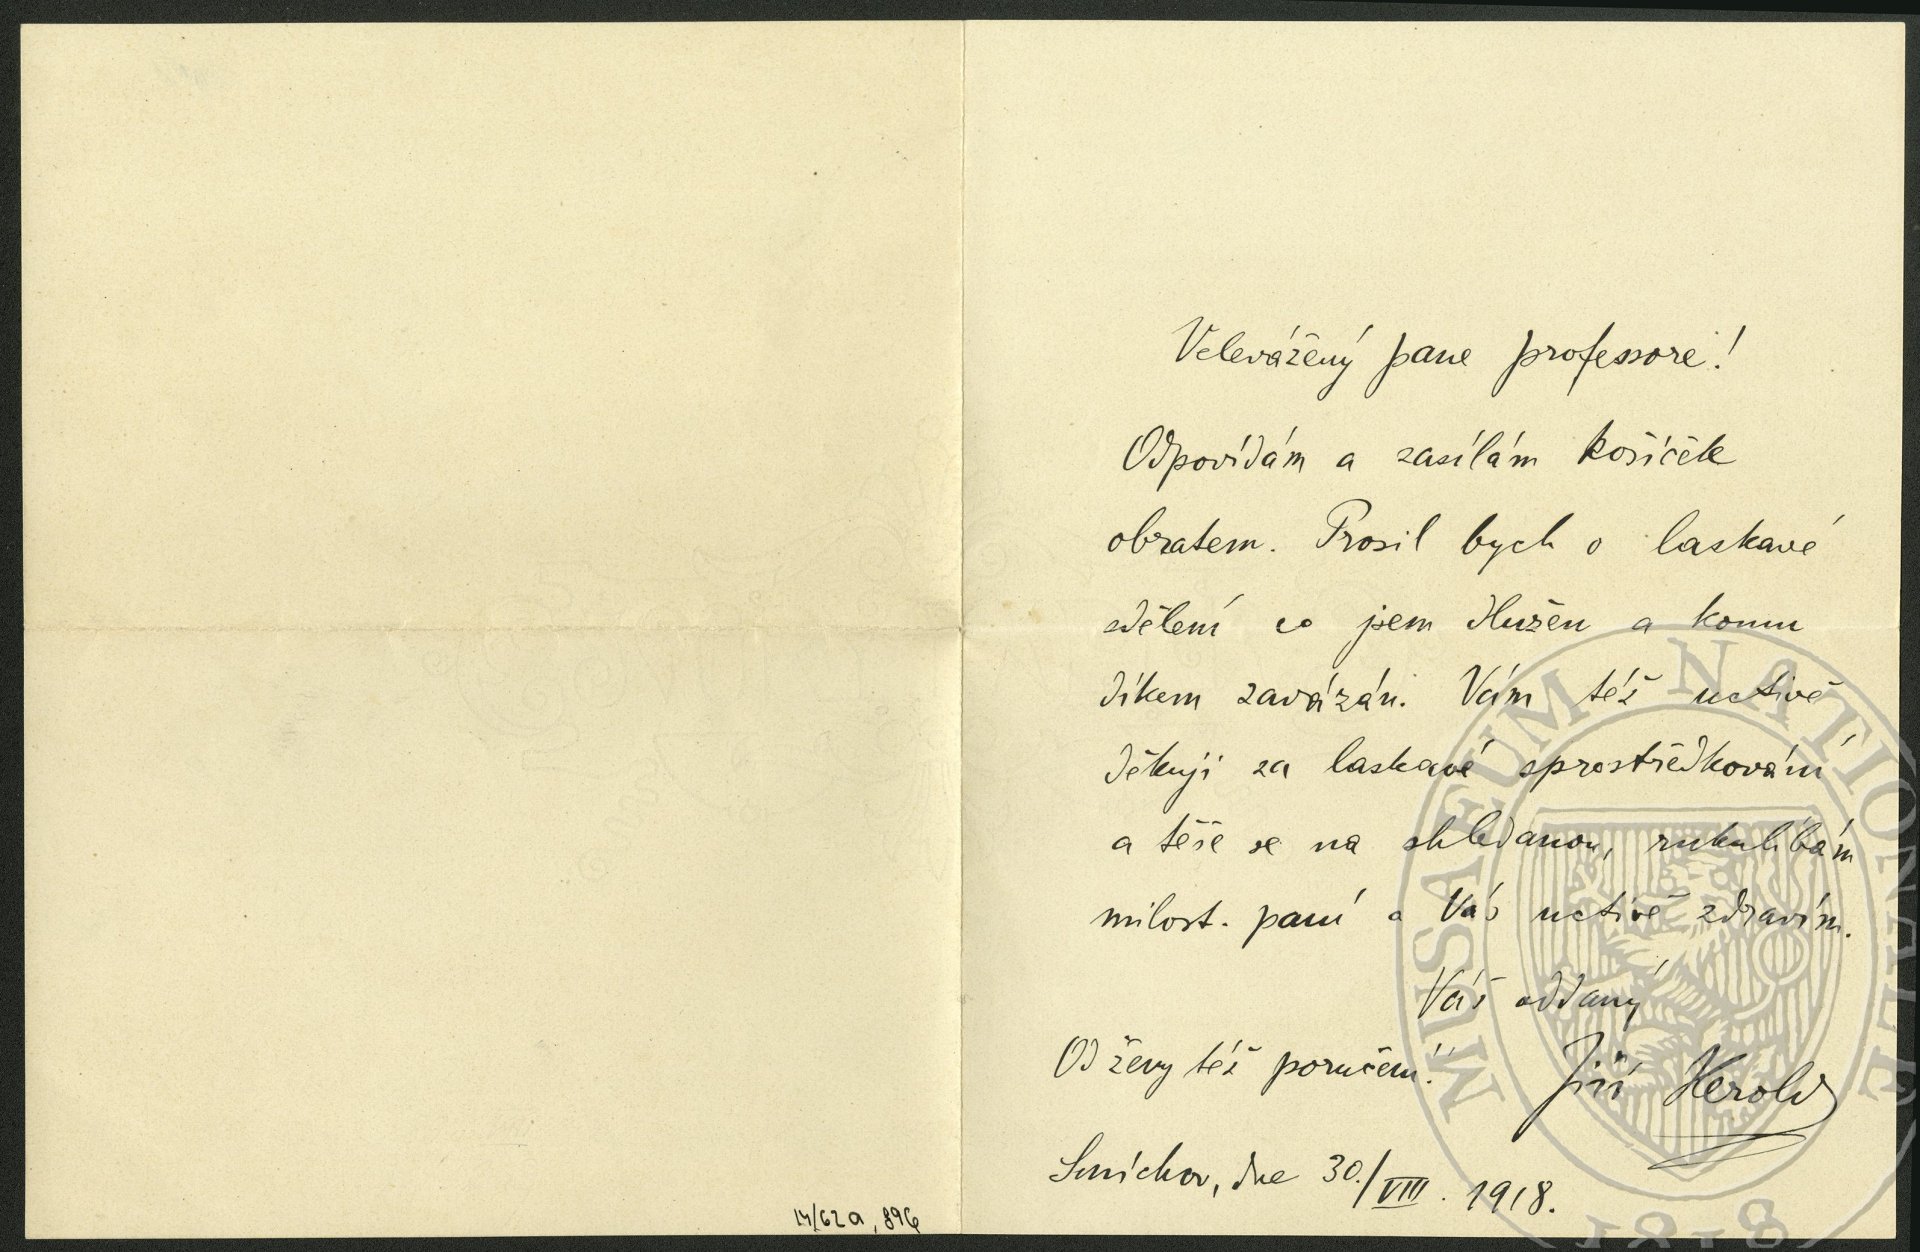 Velevážený pane professore!
Odpovídám a zasílám košíček
obratem. Prosil bych o laskavé
sdělení co jsem dlužen a komu
díkem zavázán. Vám též uctivě
děkuji za laskavé sprostředkování
a těše se na shledanou, rukulíbám
milost. paní a Vás uctivě zdravím.
Váš oddaný
Od ženy též poručení!
Jiří Herold
Smíchov, dne 30./VIII. 1918.
14/62a, 896
MUSAEUM NATIONALE
1818